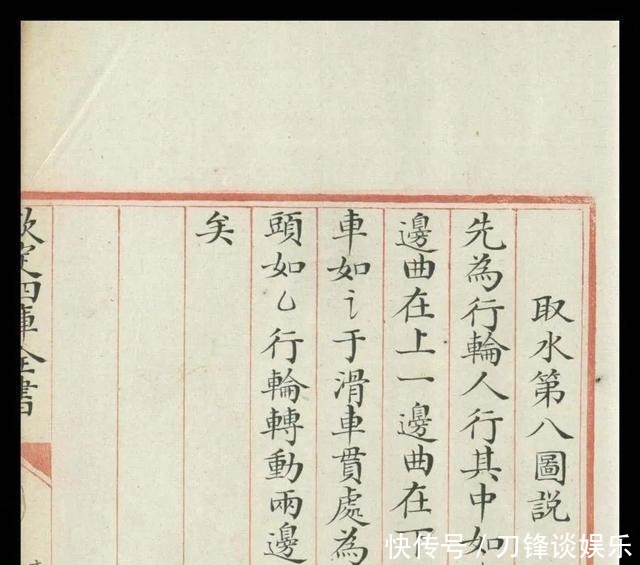 取水第八圖説
先為行輪人行其中如
邊曲在上一邊曲在下
車如讠于滑車貫處為
頭如乚行輪轉動兩邊
矣
欽定四庫全書
快传号/刀锋谈娱乐